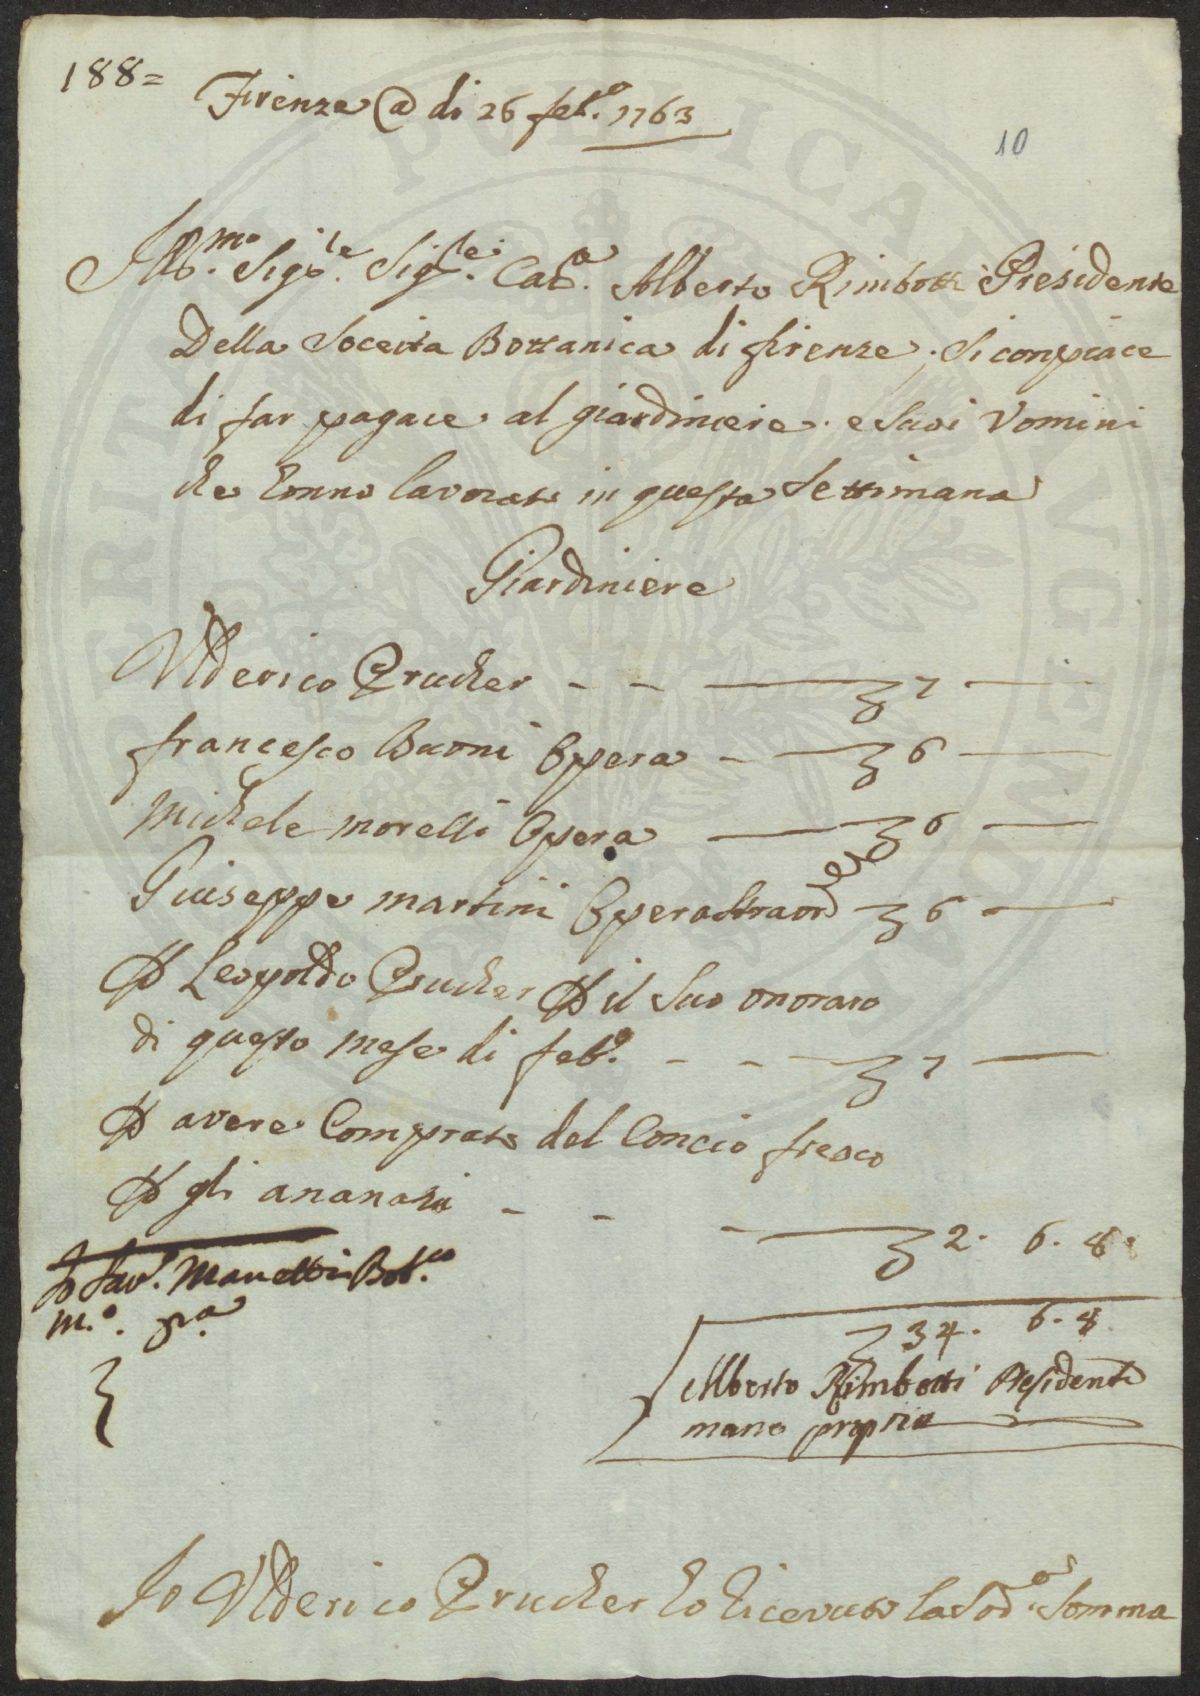 188=
Firenze @ di 26 feb.o 1763
10
Ill.mo Sig.re Sig.re Cav.e Alberto Rimbotti Presidente
Della Soceita Bottanica di firenze, si conpiace
di far pagare al giardiniere e suoi Vomini
che Enno lavorato in questa Settimana
Giardiniere
Vlderico Prucher - - — 7 —
francesco Buoni Opera - — 6 —
Michele morelli Opera — 6 —
Giuseppe martini Opera Straord — 6 —
P Leopoldo Prucher P il Suo onoraro
di questo mese di feb.o - - — 7 —
P avere Comprato del Concio fresco
P gli ananasi - - — 2. 6. 8.
Io Sav. Manetti Bot.co
m.o p.a
34. 6. 8
Alberto Rimbotti Presidente
mano propria
Io Vlderico Prucher ho riceuuto la Sod.a Somma
PVBLICAE